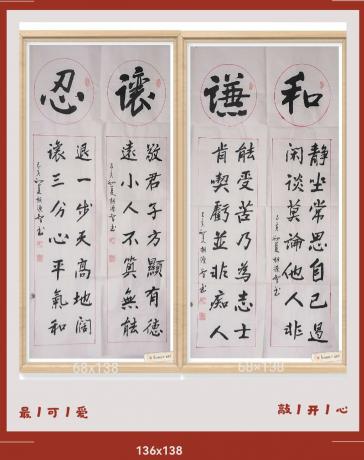 和
静坐常思自己過
闲談莫論他人非
謙
能受苦乃為志士
肯喫虧並非痴人
讓
敬君子方顯有德
遠小人不算無能
忍
退一步天高地闊
讓三分心平氣和
68x138
68×138
最/可/爱
敲/开/心
136x138